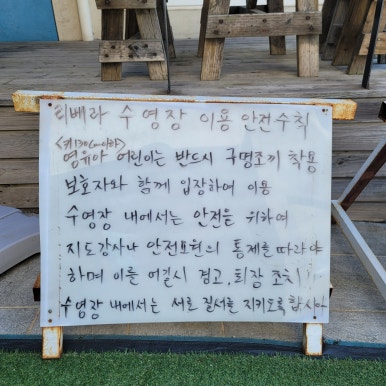 리베라 수영장 이용 안전수칙
<키 130cm이하>
영유아 어린이는 반드시 구명조끼 착용
보호자와 함께 입장하여 이용
수영장 내에서는 안전을 위하여
지도강사나 안전요원의 통제를 따라야
하며 이를 어길시 경고, 퇴장 조치
수영장 내에서는 서로 질서를 지키도록 합시다